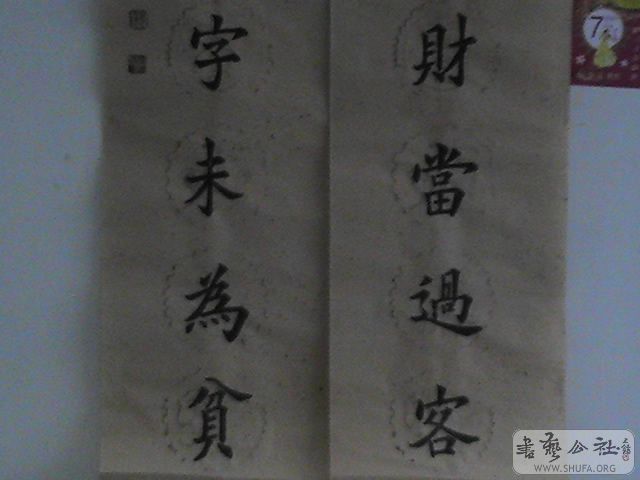 財當過客
字未為貧
7
書藝公社
WWW.SHUFA.ORG